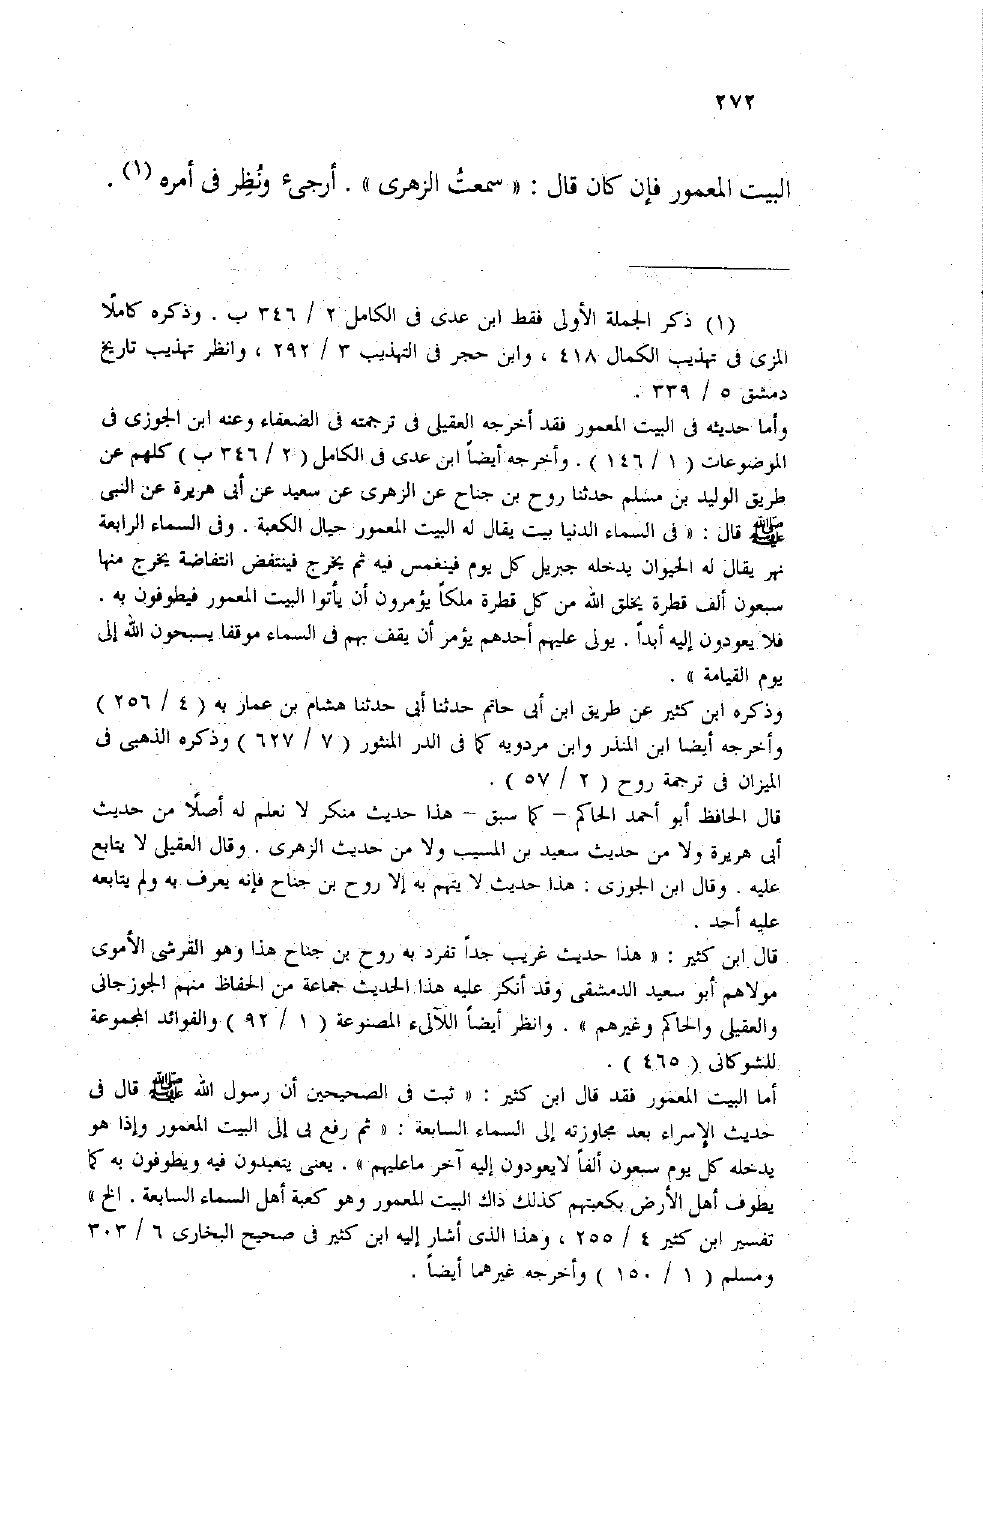 ٢٧٢
البيت المعمور فإن كان قال : « سمعتُ الزهرى » . أرجىء ونُظِر فى أمره (١) .
(١) ذكر الجملة الأولى فقط ابن عدى فى الكامل ٢ / ٣٤٦ ب . وذكره كاملًا
المزى فى تهذيب الكمال ٤١٨ ، وابن حجر فى التهذيب ٣ / ٢٩٢ ، وانظر تهذيب تاريخ
دمشق ٥ / ٣٣٩ .
وأما حديثه فى البيت المعمور فقد أخرجه العقيلى فى ترجمته فى الضعفاء وعنه ابن الجوزى فى
الموضوعات ( ١ / ١٤٦ ) . وأخرجه أيضاً ابن عدى فى الكامل ( ٢ / ٣٤٦ ب ) كلهم عن
طريق الوليد بن مسلم حدثنا روح بن جناح عن الزهرى عن سعيد عن أبى هريرة عن النبى
ﷺ قال : « فى السماء الدنيا بيت يقال له البيت المعمور حيال الكعبة . وفى السماء الرابعة
نهر يقال له الحيوان يدخله جبريل كل يوم فينغمس فيه ثم يخرج فينتفض انتفاضة يخرج منها
سبعون ألف قطرة يخلق الله من كل قطرة ملكاً يؤمرون أن يأتوا البيت المعمور فيطوفون به .
فلا يعودون إليه أبداً . يولى عليهم أحدهم يؤمر أن يقف بهم فى السماء موقفا يسبحون الله إلى
يوم القيامة » .
وذكره ابن كثير عن طريق ابن أبى حاتم حدثنا أبى حدثنا هشام بن عمار به ( ٤ / ٢٥٦ )
وأخرجه أيضا ابن المنذر وابن مردويه كما فى الدر المنثور ( ٧ / ٦٢٧ ) وذكره الذهبى فى
الميزان فى ترجمة روح ( ٢ / ٥٧ ) .
قال الحافظ أبو أحمد الحاكم – كما سبق – هذا حديث منكر لا نعلم له أصلًا من حديث
أبى هريرة ولا من حديث سعيد بن المسيب ولا من حديث الزهرى . وقال العقيلى لا يتابع
عليه . وقال ابن الجوزى : هذا حديث لا يتهم به إلا روح بن جناح فإنه يعرف به ولم يتابعه
عليه أحد .
قال ابن كثير : « هذا حديث غريب جداً تفرد به روح بن جناح هذا وهو القرشى الأموى
مولاهم أبو سعيد الدمشقى وقد أنكر عليه هذا الحديث جماعة من الحفاظ منهم الجوزجانى
والعقيلى والحاكم وغيرهم » . وانظر أيضاً اللآلىء المصنوعة ( ١ / ٩٢ ) والفوائد المجموعة
للشوكانى ( ٤٦٥ ) .
أما البيت المعمور فقد قال ابن كثير : « ثبت فى الصحيحين أن رسول الله ﷺ قال فى
حديث الإسراء بعد مجاوزته إلى السماء السابعة : « ثم رفع بى إلى البيت المعمور وإذا هو
يدخله كل يوم سبعون ألفاً لايعودون إليه آخر ماعليهم » . يعنى يتعبدون فيه ويطوفون به كما
يطوف أهل الأرض بكعبتهم كذلك ذاك البيت المعمور وهو كعبة أهل السماء السابعة . الخ »
تفسير ابن كثير ٤ / ٢٥٥ ، وهذا الذى أشار إليه ابن كثير فى صحيح البخارى ٦ / ٣٠٣
ومسلم ( ١ / ١٥٠ ) وأخرجه غيرهما أيضاً .